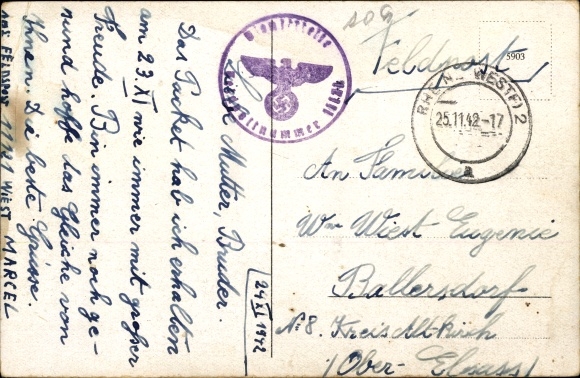 Liebe Mutter, Bruder.
Das Packet hab ich erhalten
am 23.XI wie immer mit großer
Freude. Bin immer noch ge-
sund hoffe das Gleiche von
Ihnen. Die beste Grüsse.
ABS FELDPOST 11121 WIEST MARCEL
24 XI 1942
Dienststelle
Feldpostnummer
Feldpost
5903
RHEINE (WESTF) 2
25.11.42-17
a
An Familie
Wwe Wiest Eugenie
Ballersdorf
No 8. Kreis Altkirch
/Ober-Elsass/